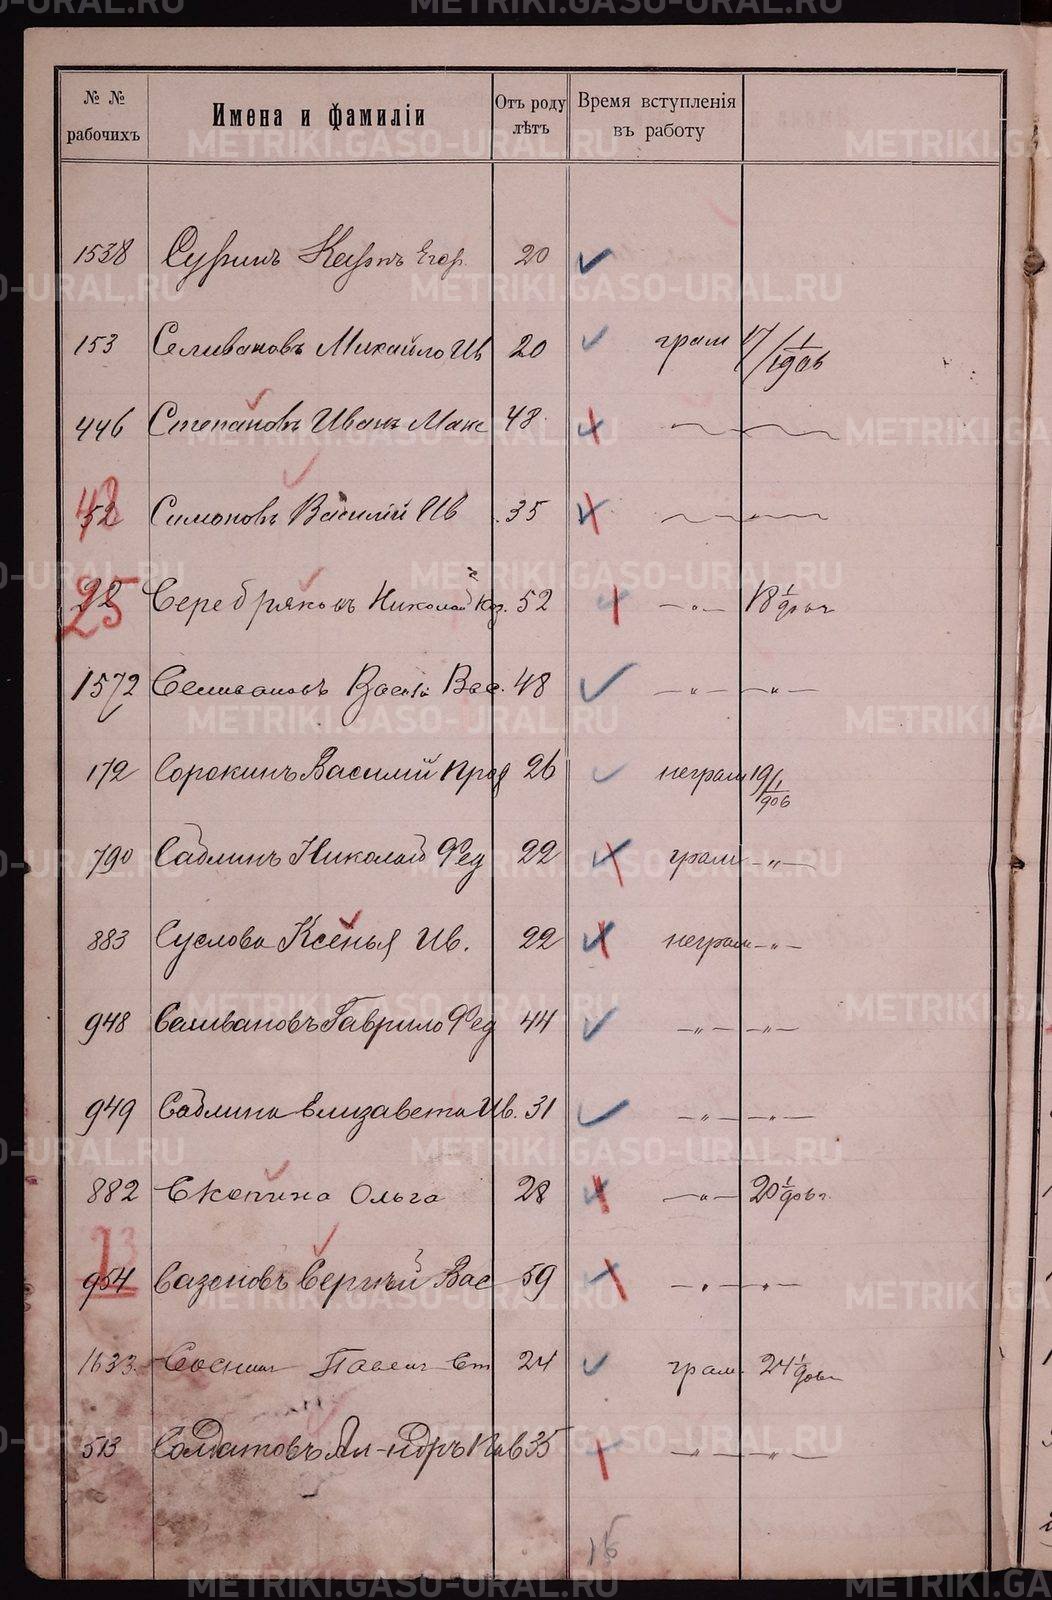 № № рабочихъ Имена и фамиліи Отъ роду лѣтъ Время вступленія въ работу
1538 Суринъ Карпъ Егор. 20
153 Селивановъ Михайло Ив 20 грам 17/1 1906
446 Степановъ Иванъ Макс 48
48 52 Симоновъ Василій Ив 35
25 22 Серебряковъ Николай Коз. 52 —„— 18 1/906 г
1572 Селивановъ Васил Вас. 48 —„— —„—
172 Сорокинъ Василій Прод 26 неграм 19/1 906
790 Саблинъ Николай Фед 22 грам —„—
883 Суслова Ксенья Ив. 22 неграм —„—
948 Селивановъ Гаврило Фед 44 —„— —„—
949 Саблина Елизавета Ив. 31 —„— —„—
882 Скопина Ольга 28 —„— 20 1/906 г.
73 954 Сазоновъ Сергѣй Вас 59 —„— —„—
1633 Соснин Павел Ст 24 грам. 24 1/906
513 Солдатовъ Ал-ндръ Пав 35 —„— —„—
15
METRIKI.GASO-URAL.RU